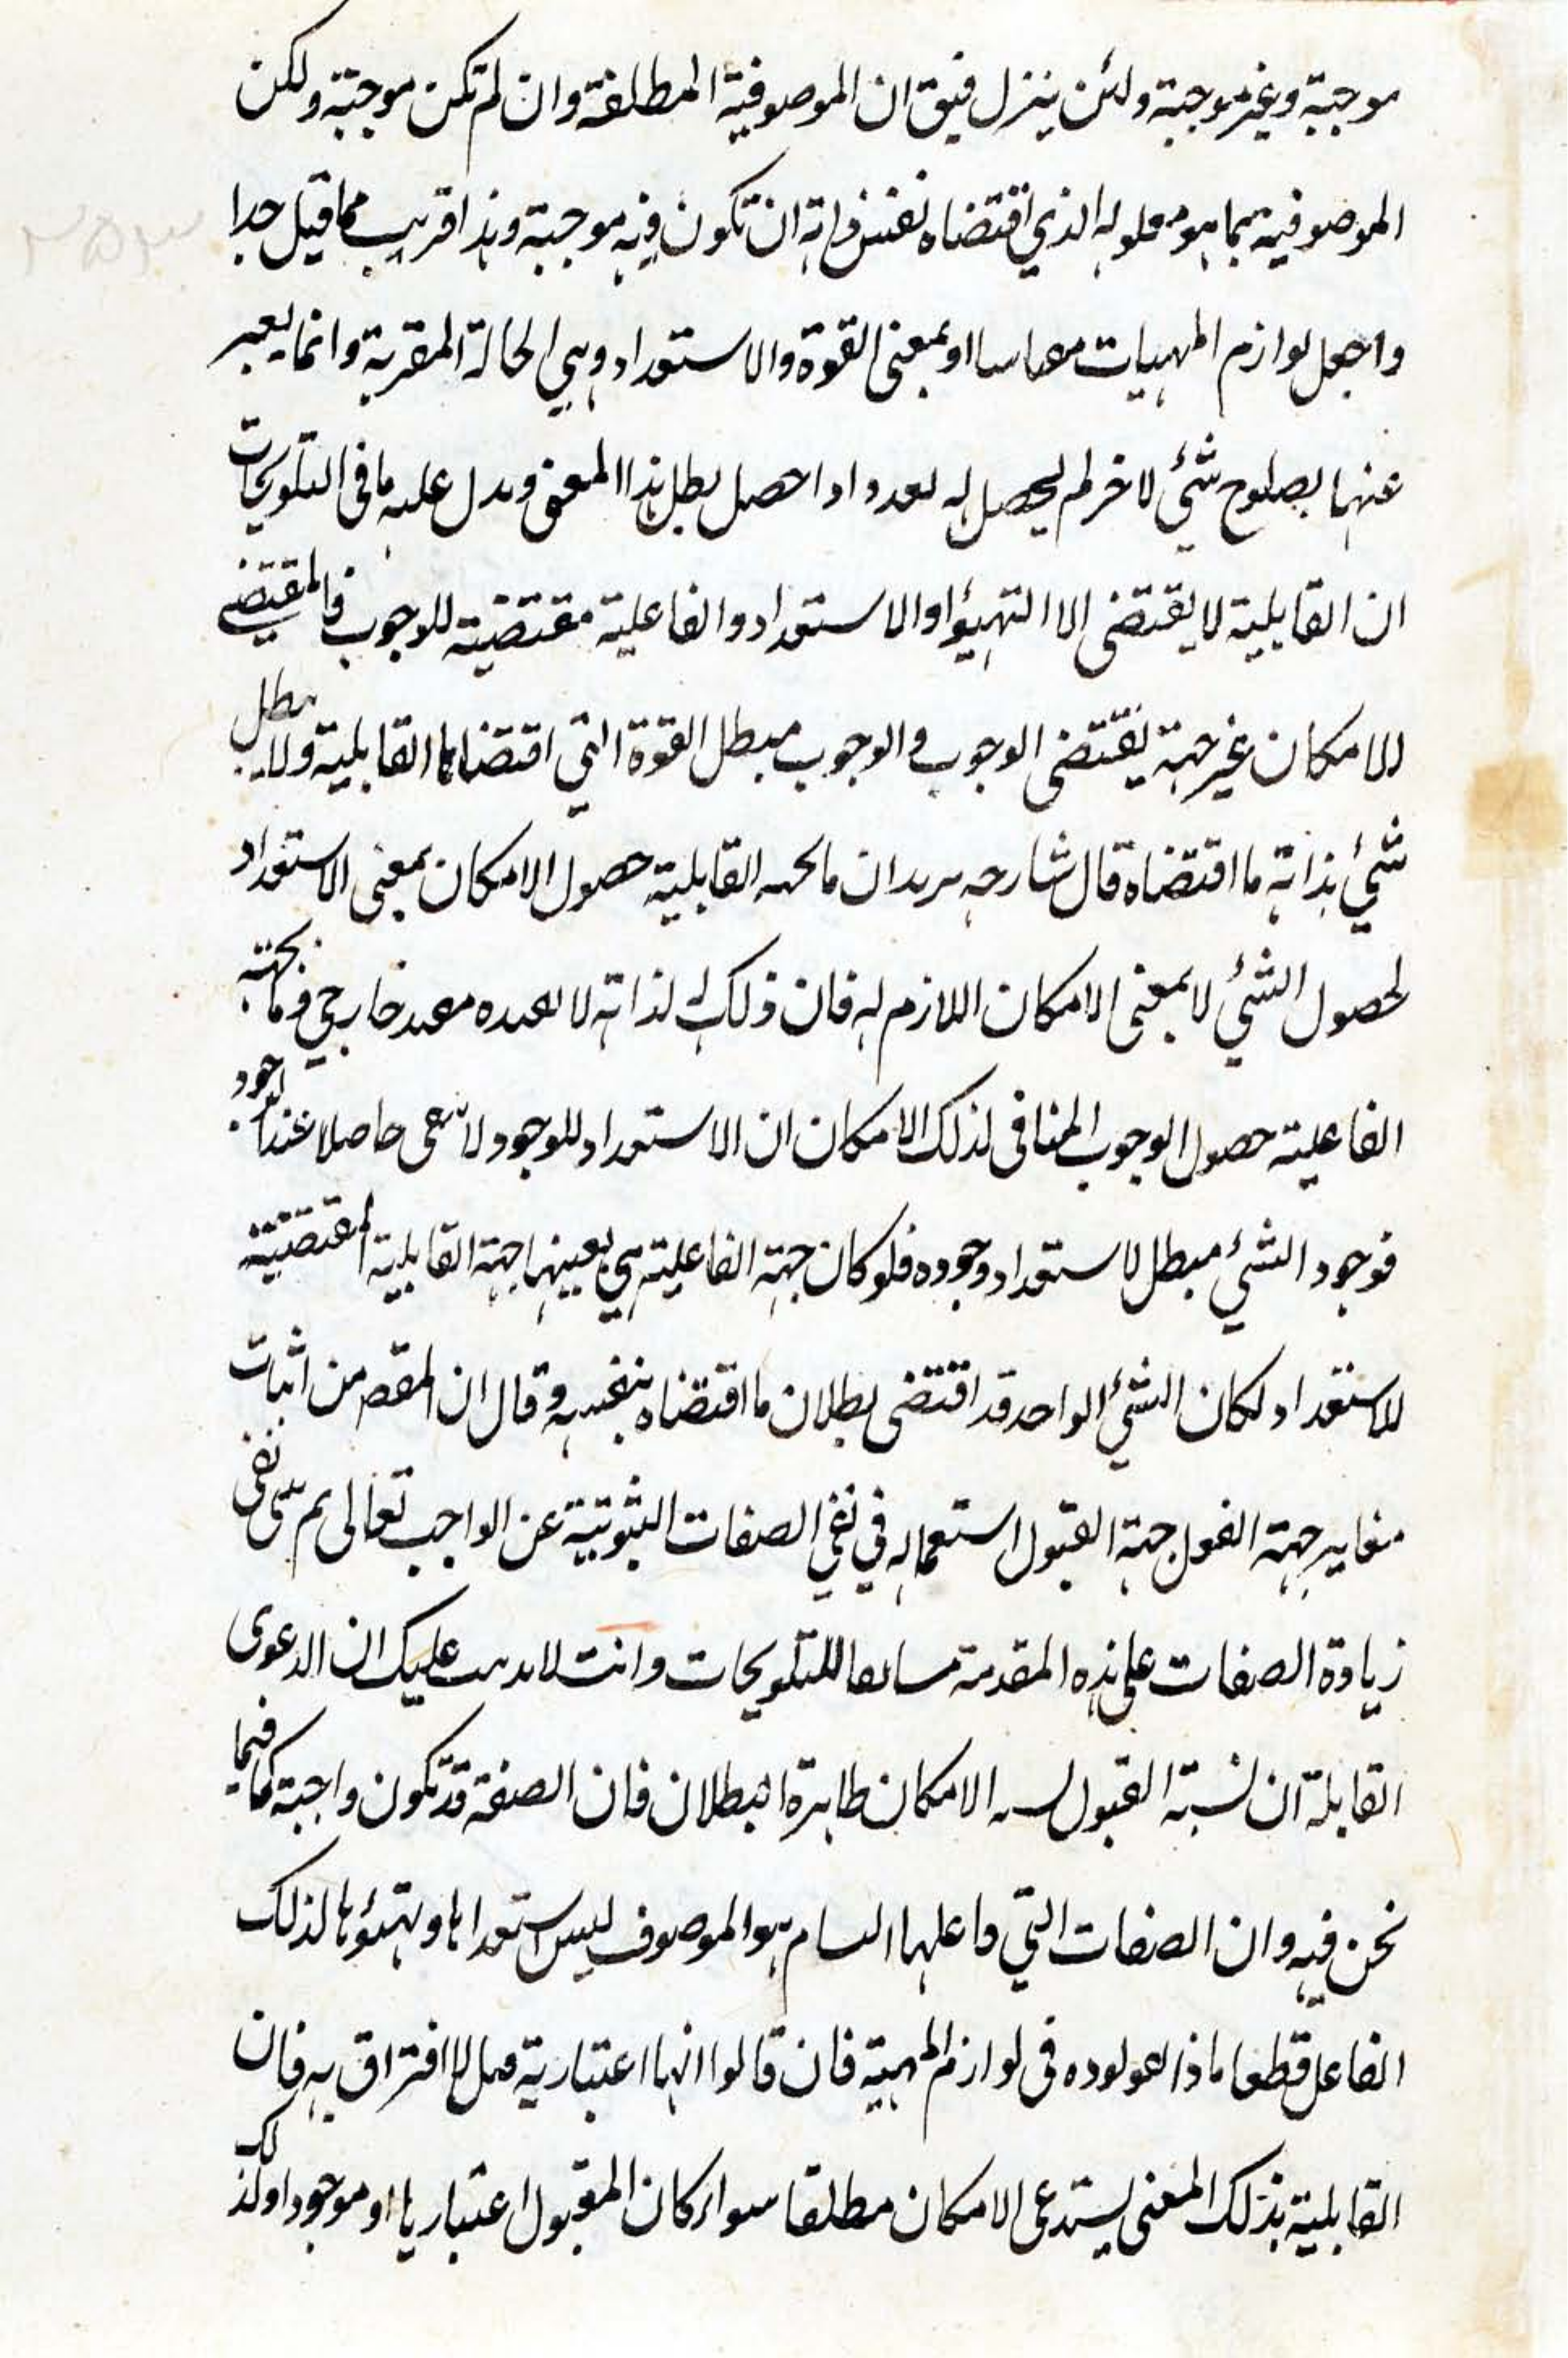 موجبة وغير موجبة ولئن ينزل فيق ان الموصوفية المطلقة وان لم تكن موجبة ولكن
الموصوفية بما هو معلوله الذي اقتضاه نفس ذاته ان تكون فيه موجبة وهذا قريب مما قيل جدا
واجعل لوازم المهيات او بمعنى القوة والاستعداد وهي الحالة المقربة وانما يعبر
عنها بصلوح شئ لاخر لم يحصل له بعد واذا حصل بطل هذا المعنى ويدل عليه ما في التلويحات
ان القابلية لا يقتضى الا التهيؤ او الاستعداد والفاعلية مقتضية للوجوب فالمقتضى
للامكان غير جهة يقتضى الوجوب والوجوب مبطل القوة التي اقتضاها القابلية ولا يبطل
شئ بذاته ما اقتضاه قال شارحه يريد ان ما بجهة القابلية حصول الامكان بمعنى الاستعداد
لحصول الشئ لا بمعنى الامكان اللازم له فان ذلك له لذاته لا يفيده مفيد خارجي وما بجهة
الفاعلية حصول الوجوب المنافى لذلك الامكان ان الاستعداد للوجود لا يبقى حاصلا عند الوجود
فوجود الشئ مبطل لاستعداد وجوده فلو كان جهة الفاعلية هي بعينها جهة القابلية المقتضية
للاستعداد لكان الشئ الواحد قد اقتضى بطلان ما اقتضاه بنفسه وقال ان المقصم من اثبات
مغايرة جهة الفعل جهة القبول استعماله في نفي الصفات الثبوتية عن الواجب تعالى ثم بنى نفى
زيادة الصفات على هذه المقدمة للتلويحات وانت لا يذهب عليك ان الدعوى
القابلة ان نسبة القبول نسبة الامكان ظاهرة البطلان فان الصفة قد تكون واجبة كما فيما
نحن فيه وان الصفات التي فاعلها التام هو الموصوف ليس استعدادها وتهيؤها لذلك
الفاعل قطعا ماذا في لوازم المهية فان قالوا انها اعتبارية افتراق به فان
القابلية بذلك المعنى يستدعى الامكان مطلقا سواء كان المقبول اعتباريا او موجودا وكذلك